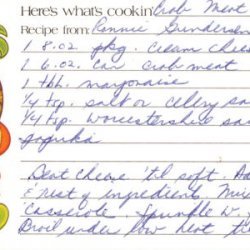 Here's what's cookin' Crab Meat
Recipe from: Connie Gunderson
1 8.oz. pkg. cream chees
1 6.oz. can crab meat
1 tbl. mayonaise
1/4 tsp. salt or cellery sa
1/4 tsp. Worcestershire sa
paprika
Beat cheese 'til soft. Ad
& rest of ingredients. Mix
Casserole. Sprinkle w.
Broil under low heat